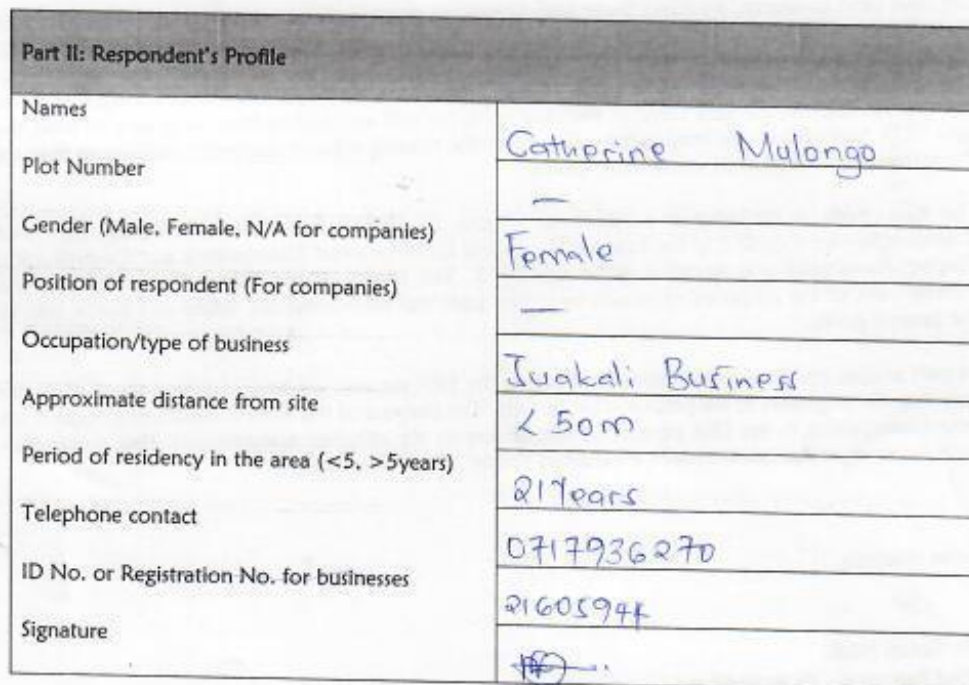 Part II: Respondent's Profile
Names
Catherine Mulongo
Plot Number
—
Gender (Male, Female, N/A for companies)
Female
Position of respondent (For companies)
—
Occupation/type of business
Juakali Business
Approximate distance from site
<50m
Period of residency in the area (<5, >5years)
21Years
Telephone contact
0717936270
ID No. or Registration No. for businesses
Signature